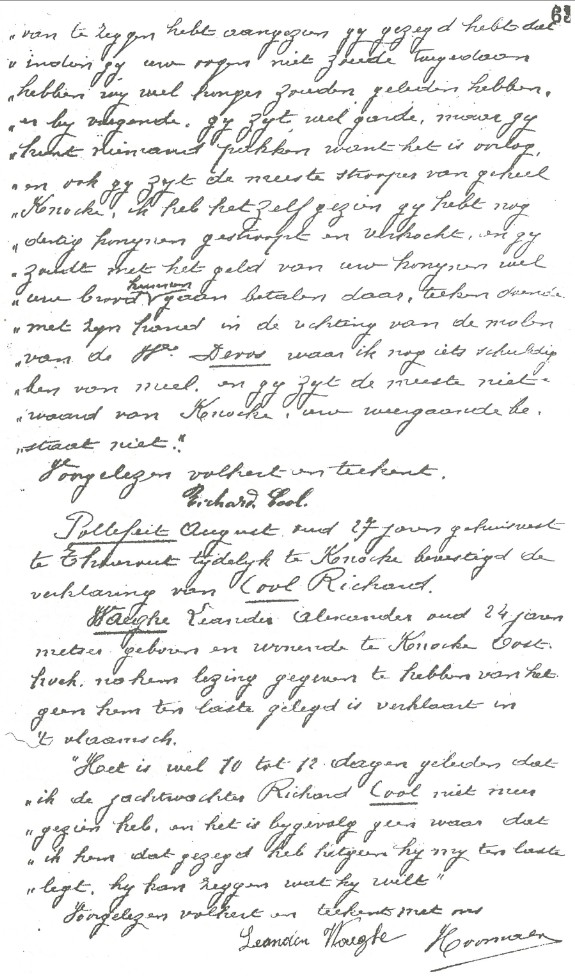 62
„van te zeggen hebt aangezien gy gezegd hebt dat
„indien gy uw oogen niet zoude toegedaan
„hebben wy wel honger zouden geleden hebben,
„er by voegende. gy zyt wel garde, maar gy
„kunt niemand pakken want het is oorlog,
„en ook gy zyt de meeste strooper van geheel
„Knocke, ik heb het zelf gezien gy hebt nog
„dertig konynen gestroopt en verkocht, en gy
„zoudt met het geld van uw konynen wel
„uw brood kunnen gaan betalen daar, teeken doende
„met zyn hand in de richting van de molen
„van de Wwe Devos waar ik nog iets schuldig
„ben van meel, en gy zyt de meeste niet-
„waard van Knocke, uw weergaande be-
„staat niet."
Voorgelezen volhert en teekent.
Richard Cool.
Pollefeit August oud 27 jaren gehuisvest
te Thourout tydelyk te Knocke bevestigd de
verklaring van Cool Richard.
Waeghe Leander Alexander oud 24 jaren
metser geboren en wonende te Knocke Oost-
hoek. na hem lezing gegeven te hebben van het
geen hem ten laste gelegd is verklaart in
't vlaamsch.
"Het is wel 10 tot 12 dagen geleden dat
„ik de jachtwachter Richard Cool niet meer
„gezien heb, en het is bygevolg geen waar dat
„ik hem dat gezegd heb hetgeen hy my ten laste
„legt, hy kan zeggen wat hy wilt"
Voorgelezen volhert en teekent met ons
Leander Waeghe